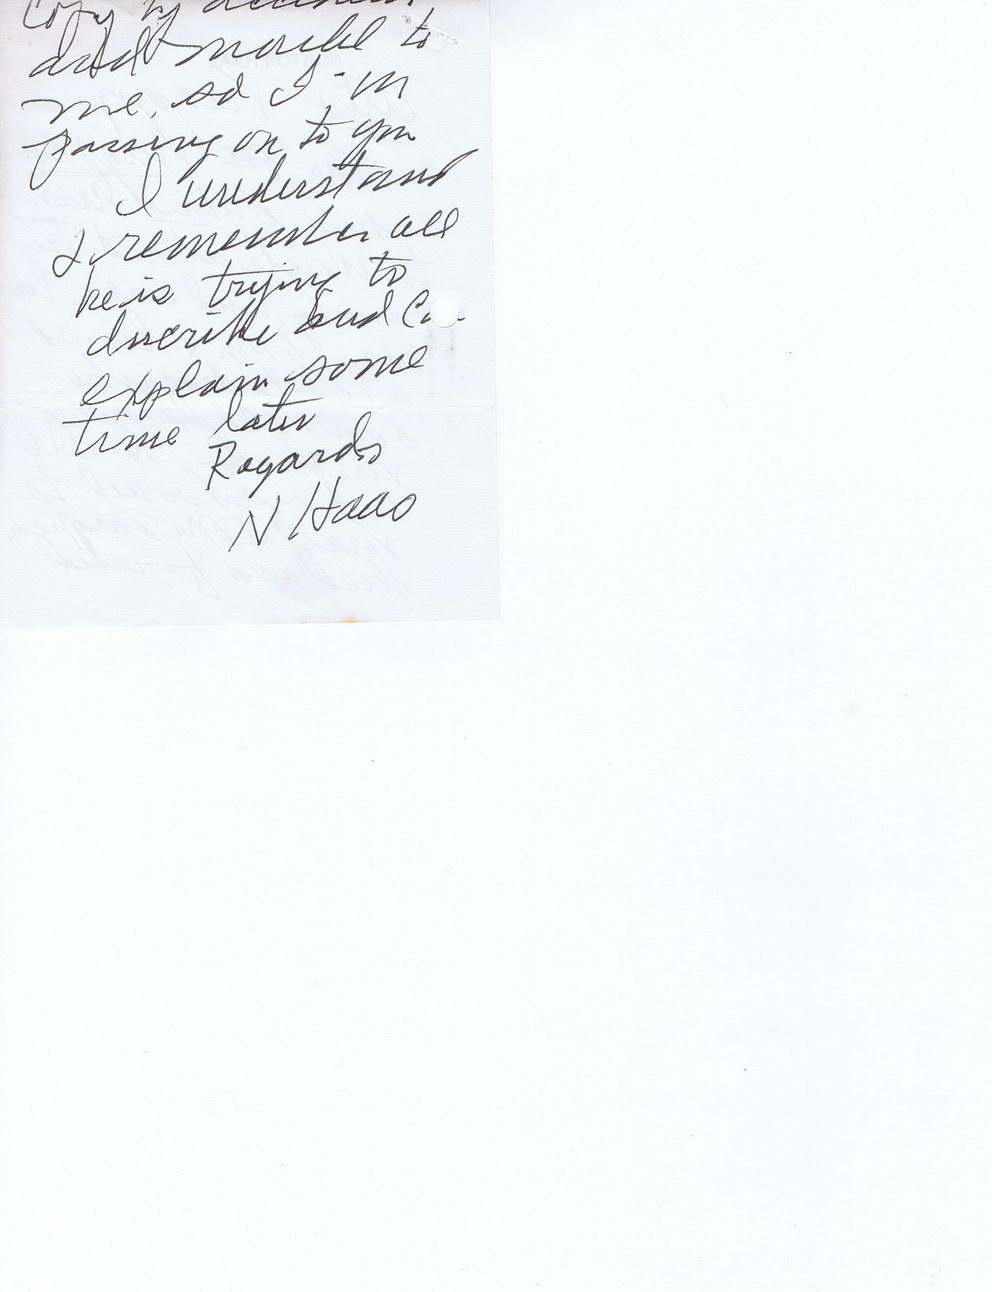 Copy of document
and mailed to
me, so I'm
passing on to you
I understand
& remember all
he is trying to
describe and Can
explain some
time later
Regards
N Haas